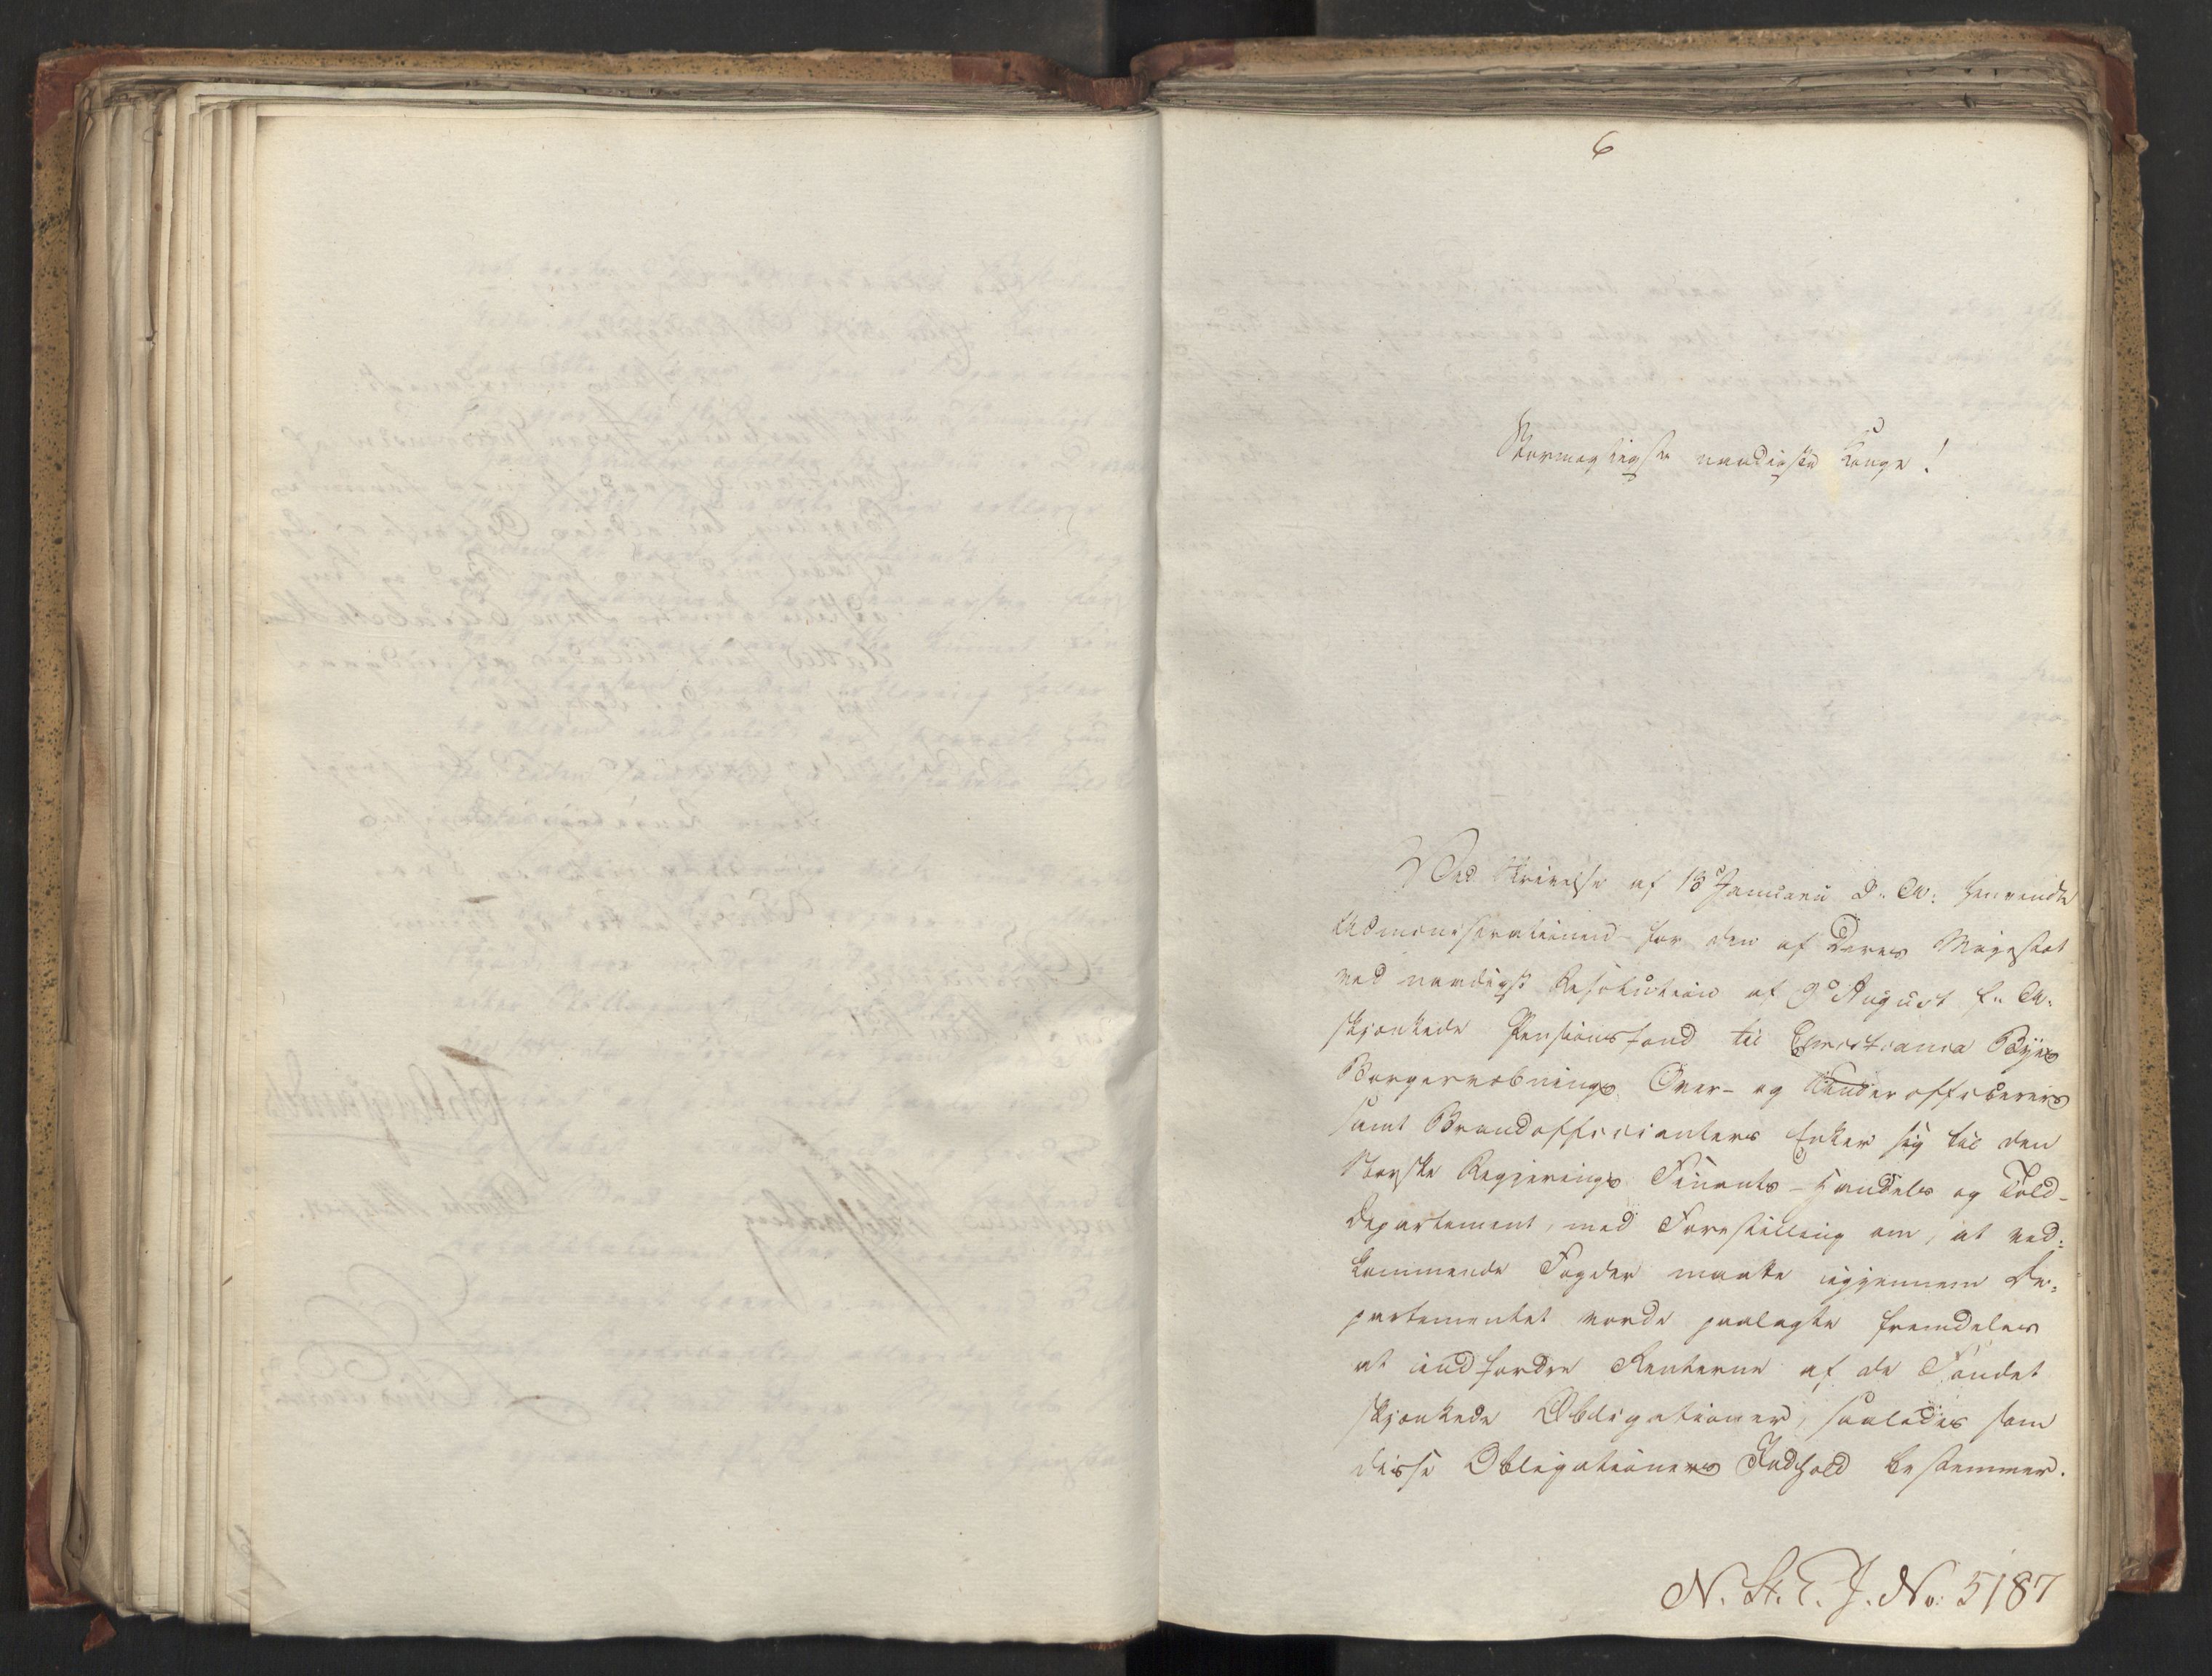 6
Stormægtigste naadigste Konge!
Ved Skrivelse af 13de Januarii D. A. henvendte
Administrationen for den af Deres Majestæt
ved naadigst Resolution af 9de August f. A.
skjænkede Pensionsfond til Christiania Byes
Borgervæbnings Over- og Underofficerers
samt Brandofficianters Enker sig til den
Norske Regjerings Finants- Handels og Told-
Departement, med Forestilling om, at ved-
kommende Fogder maatte igjennem De-
partementet vorde paalagte fremdeles
at indfordre Renterne af de Fondet
skjænkede Obligationer, saaledes som
disse Obligationers Indhold bestemmer.
N. St. E. J. No. 5187